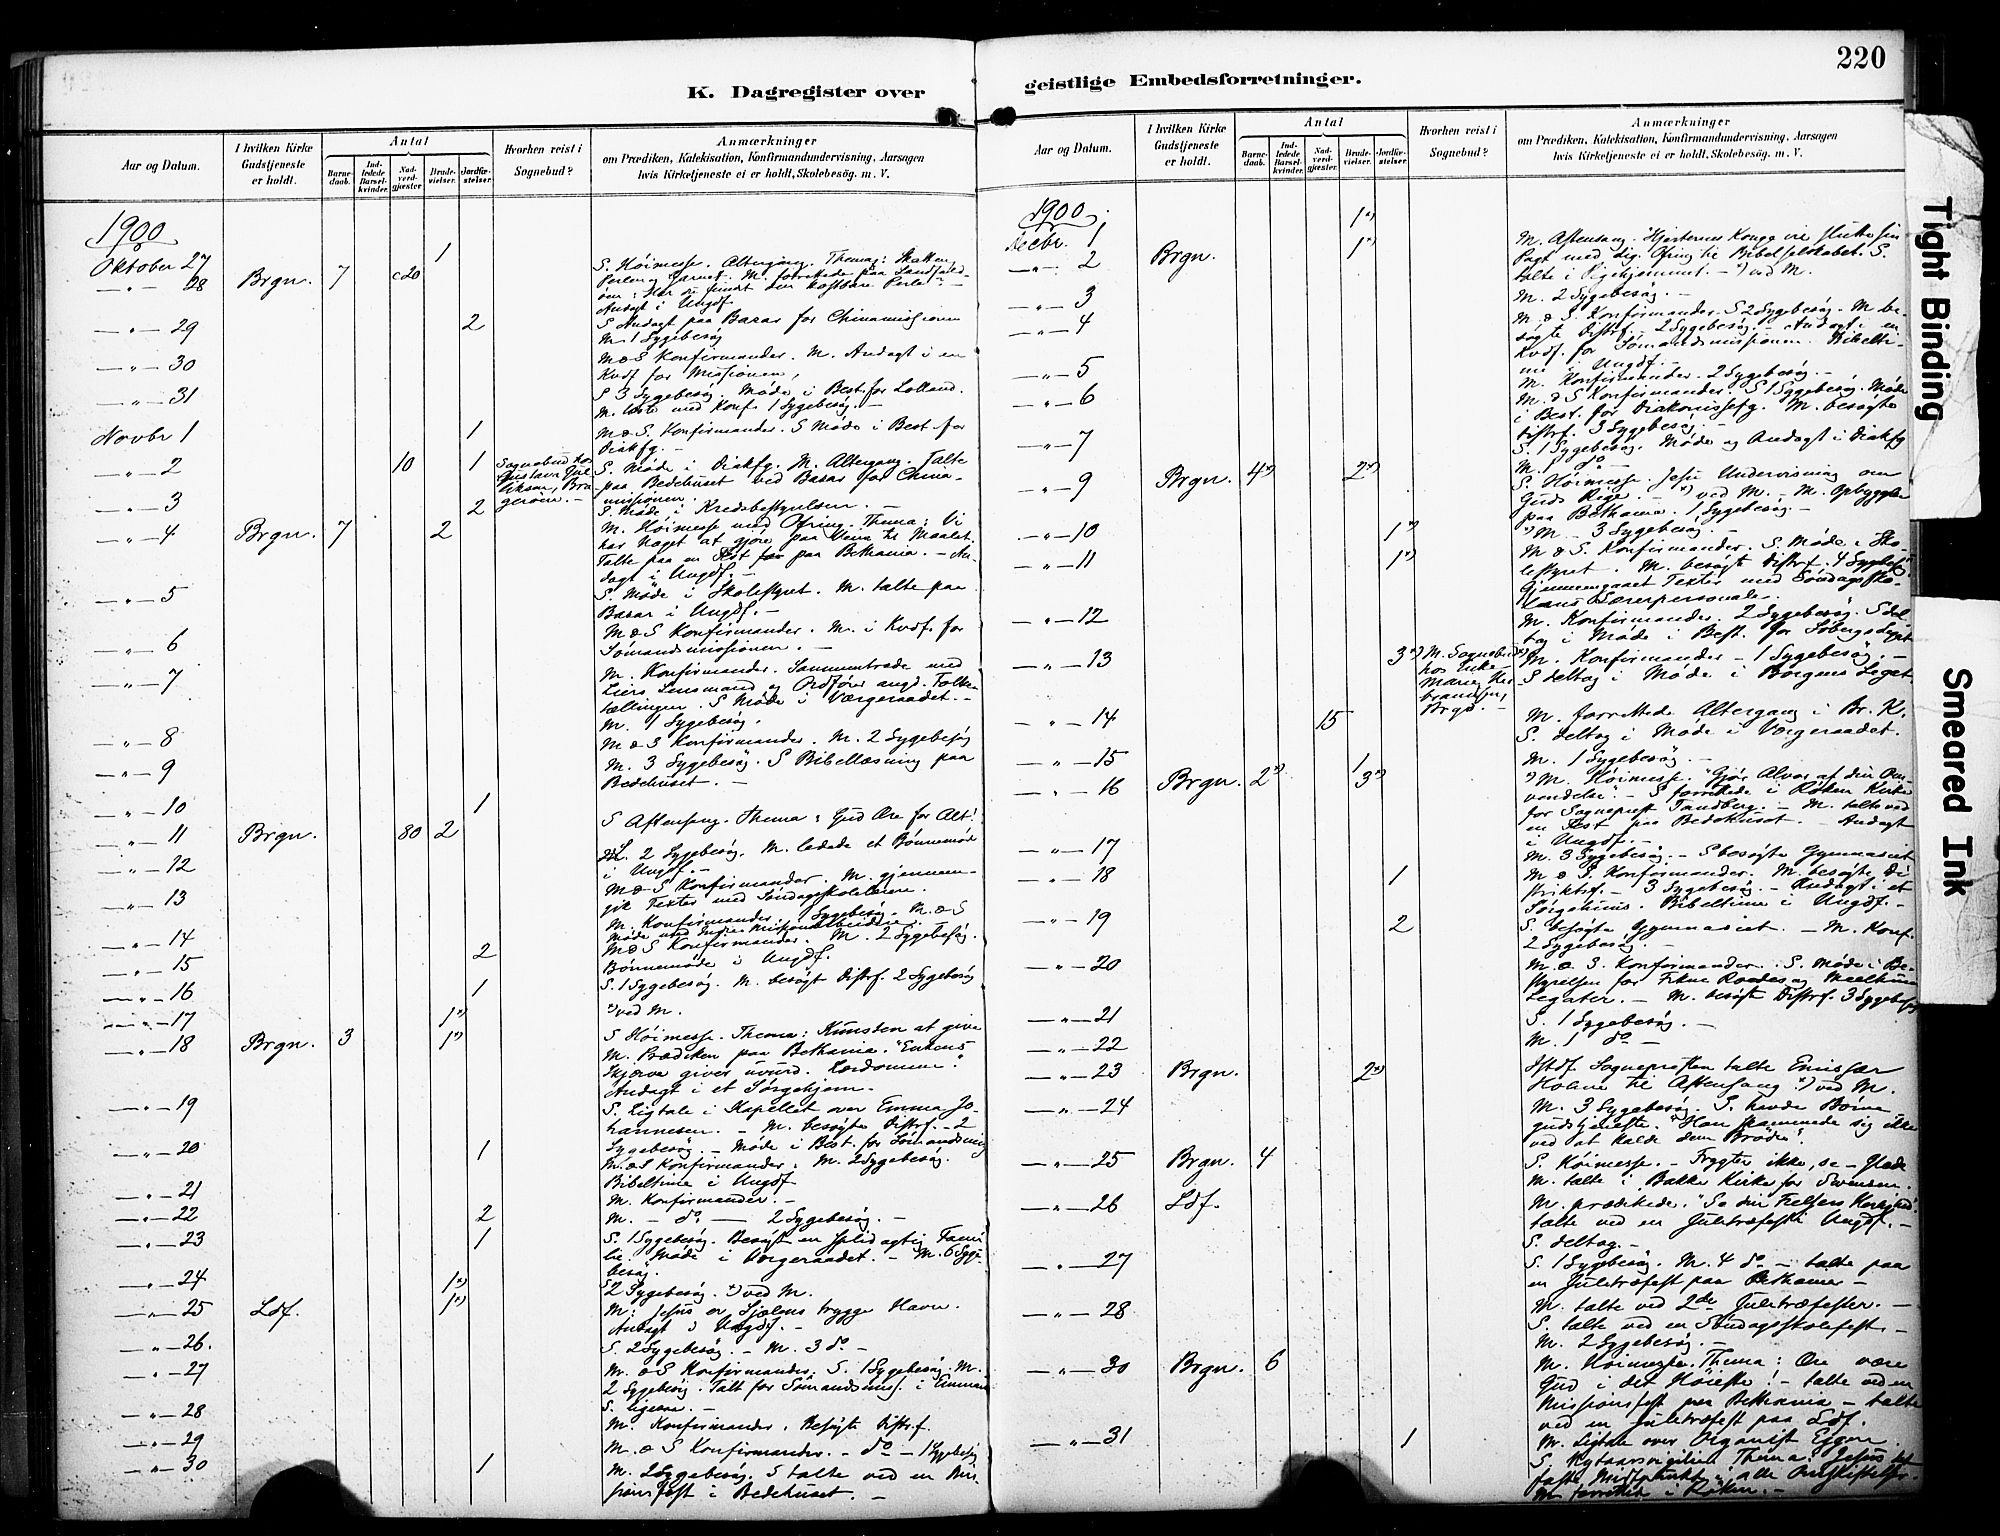 220
K. Dagregister over geistlige Embedsforretninger.
Aar og Datum.
I hvilken Kirke Gudstjeneste er holdt.
Antal
Barne-daab.
Ind-ledede Barsel-kvinder.
Nad-verd-gjæster.
Brude-vielser.
Jordfæ-stelser.
Hvorhen reist i Sognebud?
Anmærkninger
om Prædiken, Katekisation, Konfirmandundervisning, Aarsagen
hvis Kirketjeneste ei er holdt, Skolebesøg. m. V.
1900
Oktober 27 1
— " — 28 Brgn. 7 c20 S. Høimesse. Altergang. Thema: Skatten,
Perlen og Garnet. M. forrettede paa
Andagt i Ungdf.
— " — 29 2 S Andagt paa Basar for Chinamissionen
M. 1 Sygebesøg
— " — 30 M & S Konfirmander. M. Andagt i en
Kvdf for Missionen,
— " — 31 S 3 Sygebesøg. Møde i Best. for Lolland.
M. læste med Konf. 1 Sygebesøg. —
Novbr 1 1 M & S. Konfirmander. S Møde i Best for
Diakfg. —
— " — 2 10 1 Sognebud hos Gustava Bragerøen. — S. Møde i Diakfg. M. Altergang. Talte
paa Bedehuset ved Basar for China-
missionen.
— " — 3 2 S. Møde i Kredsbestyrelsen. —
— " — 4 Brgn. 7 2 M. Høimesse med Ofring. Thema: Vi
har Noget at gjøre paa Veien til Maalet.
Talte paa en Fest for paa Bethania. — An-
dagt i Ungdf. —
— " — 5 S. Møde i Skolestyret. M. talte paa
Basar i Ungdf. —
— " — 6 M & S Konfirmander. M. i Kvdf. for
Sømandsmissionen. —
— " — 7 M. Konfirmander. Sammentræde med
Liers Lensmand og Ordfører angd. Folke-
tællingen. S Møde i Værgeraadet. —
M. 1 Sygebesøg.
— " — 8 M & S Konfirmander. M. 2 Sygebesøg
— " — 9 M. 3 Sygebesøg. S Bibellæsning paa
Bedehuset. —
— " — 10 1
— " — 11 Brgn. 80 2 S Aftensang. Thema: Gud Ære for Alt!
— " — 12 2 Sygebesøg. M. ledede et Bønnemøde
i Ungdf. —
— " — 13 M & S Konfirmander. M. gjennem-
gik Texter med Søndagsskolelærerne.
— " — 14 M. Konfirmander. 1 Sygebesøg — M. & S
Møde med Indre Missionsarbeidere.
— " — 15 2 M & S Konfirmander. M. 2 Sygebesøg.
Bønnemøde i Ungdf.
— " — 16 1 S. 1 Sygebesøg. M. besøgt Distrf. 2 Sygebesøg
— " — 17 1*) *) ved M.
— " — 18 Brgn. 3 1*) S Høimesse. Thema: Kunsten at give
M. Prædiken paa Bethania. "Enkens
Skjærv
Andagt i et Sørgehjem. —
— " — 19 S. Ligtale i Kapellet over Emma Jo-
hannesen. — M. besøgte Distrf. — 2
Sygebesøg. — Møde i Best. for Sømandsmis
— " — 20 1 M. & S Konfirmander. M. 2 Sygebesøg.
Bibeltime i Ungdf
— " — 21 M. Konfirmander. —
— " — 22 2 M. — do — 2 Sygebesøg. —
— " — 23 1 S. 1 Sygebesøg. Besøgt en Fami-
lie. Møde i Værgeraadet. — M. 6 Syge-
besøg.
— " — 24 1*) S 2 Sygebesøg. *) ved M.
— " — 25 Ldf. 1*) M: Jesus er Sjælens trygge Havn.
Andagt i Ungdf. —
— " — 26. S. 2 Sygebesøg. — M. 3 do —
— " — 27 M. & S Konfirmander. S. 1 Sygebesøg. M.
2 Sygebesøg. Talt for Sømandsmiss. i
S. ligesaa. —
— " — 28 M. Konfirmander. Besøgte Distrf.
— " — 29 M. & S Konfirmander. — do — 1 Sygebesøg
— " — 30 1 M. 2 Sygebesøg. S talte ved en Mis-
sionsfest i Bedehuset. —
Aar og Datum.
I hvilken Kirke Gudstjeneste er holdt.
Antal
Barne-daab.
Ind-ledede Barsel-kvinder.
Nad-verd-gjæster.
Brude-vielser.
Jordfæ-stelser.
Hvorhen reist i Sognebud?
Anmærkninger
om Prædiken, Katekisation, Konfirmandundervisning, Aarsagen
hvis Kirketjeneste ei er holdt. Skolebesøg. m. V.
1900
Decbr. 1 1*)
— " — 2 Brgn. 1*) M. Aftensang. "Hjerternes Konge vil slutte sin
Pagt med dig. Ofring til Bibelselskabet. S.
talte i Pigehjemmet. — *) ved M.
— " — 3 M. 2 Sygebesøg. —
— " — 4 M & S. Konfirmander. S 2 Sygebesøg. M. be-
søgte Distrf. — 2 Sygebesøg. — Andagt i en
Kvdf. for Sømandsmissionen. Bibelti-
me i Ungdf. —
— " — 5 M. Konfirmander. 2 Sygebesøg. —
— " — 6 M. & S Konfirmander. S 1 Sygebesøg. Møde
i Best. for Diakonissefg. M. besøgte
Distrf. 3 Sygebesøg. —
— " — 7 S. 1 Sygebesøg. Møde og Andagt i Diakfg
M. 1 do
— " — 9 Brgn. 4*) 2*) S. Høimesse. Jesu Undervisning om
Guds Rige. — *) ved M. — M. Opbyggelse
paa Bethania. 1 Sygebesøg. —
— " — 10 1*) *) M — 3 Sygebesøg. —
— " — 11 1*) M & S. Konfirmander. S. Møde i Sko-
lestyret. M. besøgte Distrf. 4 Sygebesøg.
Gjennemgaaet Texter med Søndagssko-
lens Lærerpersonale.
— " — 12 M. Konfirmander. 2 Sygebesøg. S del-
tog i Møde i Best. for
— " — 13 3*) M. Sognebud hos Enke Marie Brgd. — *) M. Konfirmander — 1 Sygebesøg. —
S deltog i Møde i Børgens Legat
— " — 14 15 M. forrettede Altergang i Br. K.
S. deltog i Møde i Værgeraadet.
— " — 15 1 M. 1 Sygebesøg.
— " — 16 Brgn. 2*) 3*) *) M. Høimesse. "Gjør Alvor af din Om-
vendelse". — S forrettede i Røken Kirke
for Sogneprest Sandberg. — M. talte ved
en Fest paa Bedehuset. — Andagt
i Ungdf. —
— " — 17 M. 3 Sygebesøg. — S besøgte Gymnasiet
— " — 18 1 M & S. Konfirmander. M. besøgte Di-
striktsf. — 3 Sygebesøg. — Andagt i et
Sørgehuus. Bibeltime i Ungdf. —
— " — 19 2 S. besøgte Gymnasiet. — M. Konf.
2 Sygebesøg. —
— " — 20 M. & S. Konfirmander. S. Møde i Be-
styrelsen for
Legater. — M. besøgte Distrf. 3 Sygebesøg
— " — 21 S. 1 Sygebesøg. —
— " — 22 M. 1 do —
— " — 23 Brgn. 2*) Istdf. Sognepresten talte Emissær
Holme til Aftensang *) ved M.
— " — 24 M. 3 Sygebesøg. S. havde Børne-
gudstjeneste. "Han skammede sig ikke
ved at kalde dem Brødre".
— " — 25 Brgn. 4 S. Høimesse. — Frygter ikke, se — Glæde
M. talte i Bakke Kirke for Svensen.
— " — 26 Ldf. M. prædikede. "Se din Frelsers Kjærlighed"
talte ved en Juletræfest i Ungdf. —
S. deltog. —
— " — 27 S. 1 Sygebesøg. M. 4 do — talte paa
en Juletræfest paa Bethania —
— " — 28 M. talte ved 2de Juletræfester. —
S. talte ved en Søndagsskolefest. —
M. 2 Sygebesøg. —
— " — 30 Brgn. 6 M. Høimesse. Thema: Ære være
Gud i det Høieste! — talte ved en
Missionsfest paa Bethania — talte
ved en Juletræfest paa Ldf.
— " — 31 1 M. Ligtale over Organist
S. Nytaarsvigilie. Thema: Jesus et
faste Midtpunkt i alle
M. forrettede i Røken. —
Tight Binding
Smeared Ink